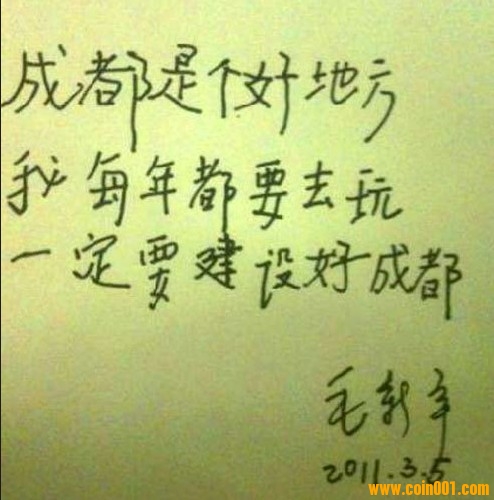 成都是个好地方
我每年都要去玩
一定要建设好成都
毛新宇
2011.3.5
www.coin001.com